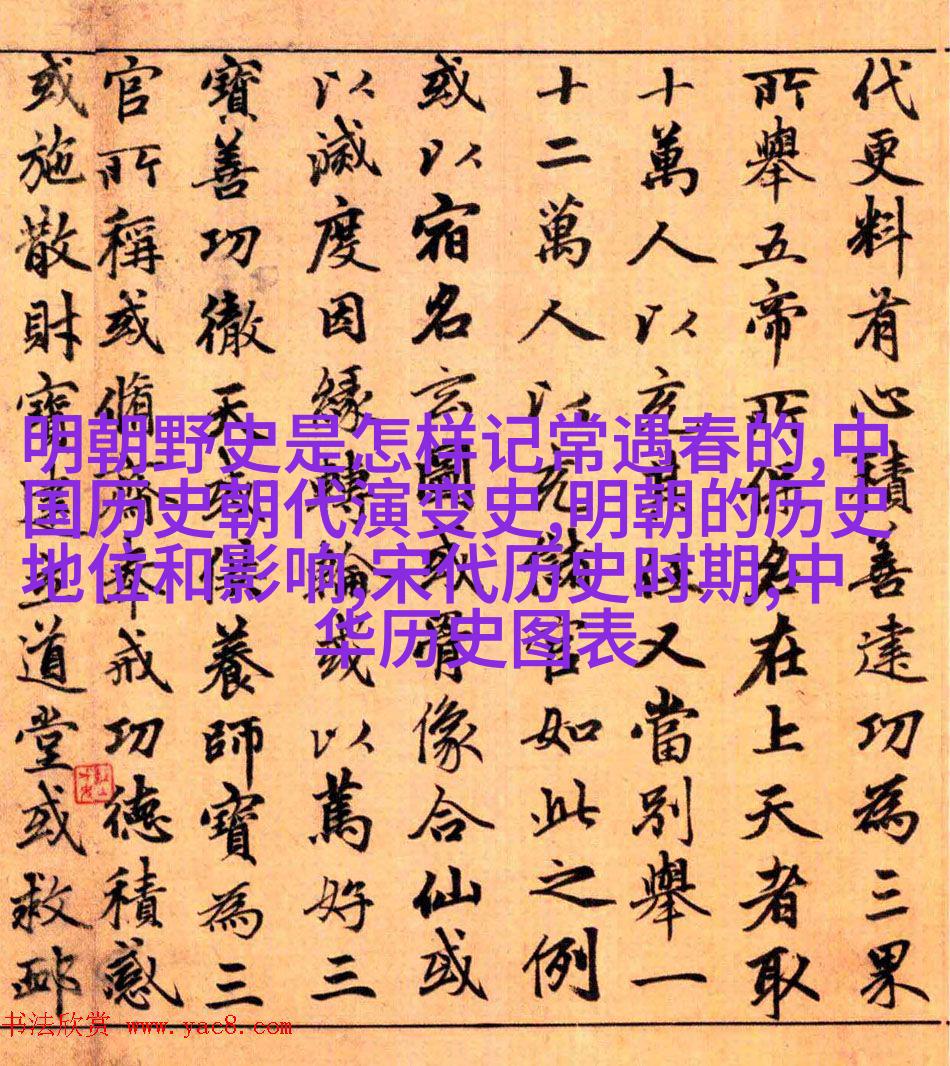 代更料有心積善建功為三界
所舉五帝所保名在上天者取
十萬人以充其任又當別舉一
十二萬人以充儲官如此之例
或以宿名玄圖或骨像合仙或
以滅度因緣轉輪或以篤好三
寶善功徹天或供養師寶為三
官所稱或脩齋奉戒功德積感
或施散財寶建立道堂或救卹
明朝野史是怎样记常遇春的,中
国历史朝代演变史,明朝的历史
地位和影响,宋代历史时期,中
华历史图表
书法欣赏 www.yac8.com